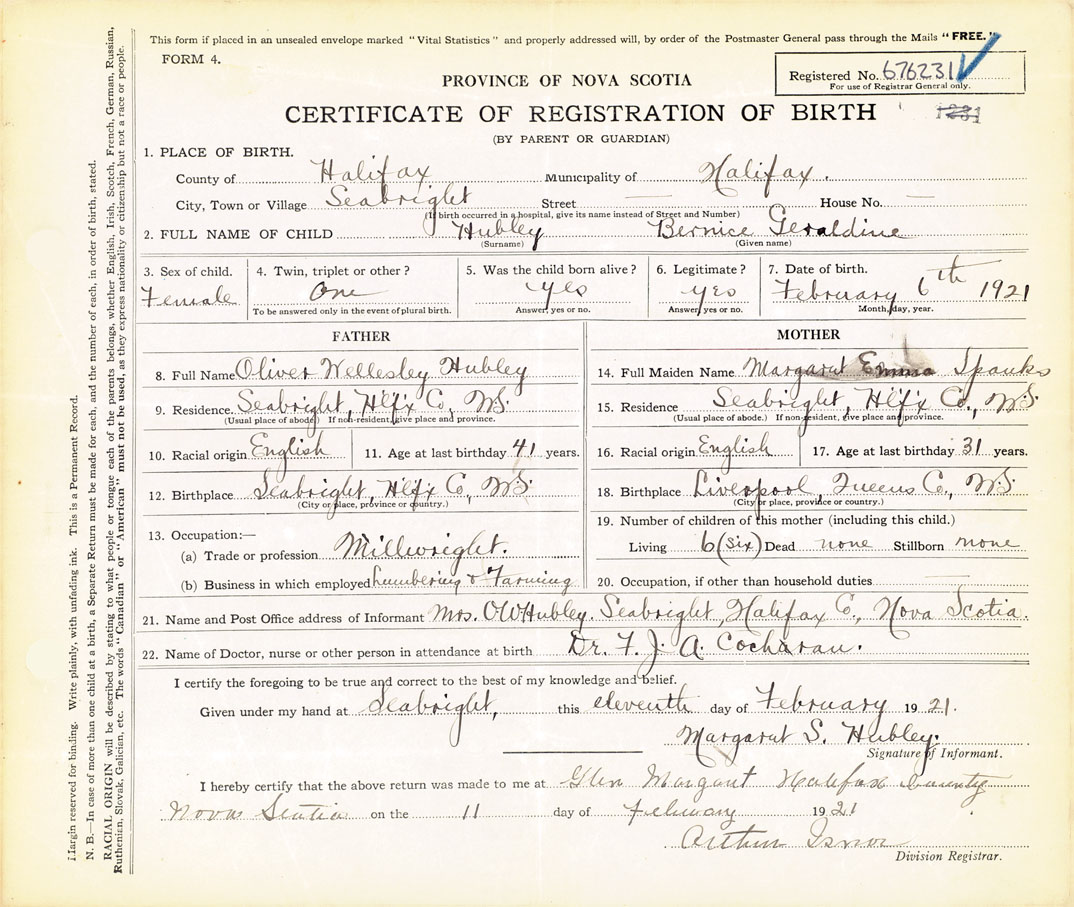 This form if placed in an unsealed envelope marked "Vital Statistics" and properly addressed will, by order of the Postmaster General pass through the Mails "FREE."
FORM 4.
Registered No. 676231
For use of Registrar General only.
PROVINCE OF NOVA SCOTIA
CERTIFICATE OF REGISTRATION OF BIRTH
1231
(BY PARENT OR GUARDIAN)
1. PLACE OF BIRTH.
County of Halifax Municipality of Halifax.
City, Town or Village Seabright Street — House No. —
(If birth occurred in a hospital, give its name instead of Street and Number)
2. FULL NAME OF CHILD Hubley Bernice Geraldine
(Surname) (Given name)
3. Sex of child. 4. Twin, triplet or other? 5. Was the child born alive? 6. Legitimate? 7. Date of birth.
Female One yes yes February 6th 1921
To be answered only in the event of plural birth. Answer, yes or no. Answer, yes or no. Month, day, year.
FATHER
8. Full Name Oliver Wellesley Hubley
9. Residence. Seabright, Hlfx Co, N.S.
(Usual place of abode.) If non-resident, give place and province.
10. Racial origin English 11. Age at last birthday 41 years.
12. Birthplace Seabright, Hlfx Co, N.S.
(City or place, province or country.)
13. Occupation:—
(a) Trade or profession Millwright.
(b) Business in which employed Lumbering & Farming
MOTHER
14. Full Maiden Name Margarut Emma Spanks
15. Residence Seabright, Hlfx Co., N.S.
(Usual place of abode.) If non-resident, give place and province.
16. Racial origin English 17. Age at last birthday 31 years.
18. Birthplace Liverpool, Queens Co., N.S.
(City or place, province or country.)
19. Number of children of this mother (including this child.)
Living 6 (six) Dead none Stillborn none
20. Occupation, if other than household duties —
21. Name and Post Office address of Informant Mrs. O W Hubley. Seabright, Halifax Co., Nova Scotia.
22. Name of Doctor, nurse or other person in attendance at birth Dr. F. J. A. Cochran.
I certify the foregoing to be true and correct to the best of my knowledge and belief.
Given under my hand at Seabright, this eleventh day of February 1921.
Margarut S. Hubley.
Signature of Informant.
I hereby certify that the above return was made to me at Glen Margaret Halifax County
Nova Scotia on the 11 day of February 1921
Arthur Isnor
Division Registrar.
Margin reserved for binding. Write plainly, with unfading ink. This is a Permanent Record.
N. B.—In case of more than one child at a birth, a Separate Return must be made for each, and the number of each, in order of birth, stated.
RACIAL ORIGIN will be described by stating to what people or tongue each of the parents belongs, whether English, Irish, Scotch, French, German, Russian,
Ruthenian, Slovak, Galician, etc. The words "Canadian" or "American" must not be used, as they express nationality or citizenship but not a race or people.